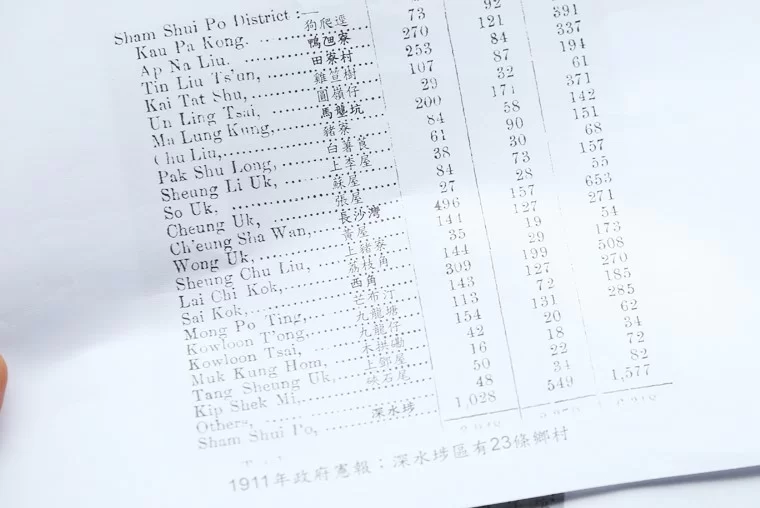 Sham Shui Po District :—
Kau Pa Kong. 狗爬逕 73 92
Ap Na Liu. 鴨乸寮 270 121 391
Tin Liu Ts'un, 田寮村 253 84 337
Kai Tat Shu, 雞笪樹 107 87 194
Un Ling Tsai, 圓嶺仔 29 32 61
Ma Lung Kung, 馬壟坑 200 171 371
Chu Liu, 豬寮 84 58 142
Pak Shu Long, 白薯莨 61 90 151
Sheung Li Uk, 上李屋 38 30 68
So Uk, 蘇屋 84 73 157
Cheung Uk, 張屋 27 28 55
Ch'eung Sha Wan, 長沙灣 496 157 653
Wong Uk, 黃屋 144 127 271
Sheung Chu Liu, 上豬寮 35 19 54
Lai Chi Kok, 荔枝角 144 29 173
Sai Kok, 西角 309 199 508
Mong Po Ting, 芒布汀 143 127 270
Kowloon T'ong, 九龍塘 113 72 185
Kowloon Tsai, 九龍仔 154 131 285
Muk Kung Hom, 木拱磡 42 20 62
Tang Sheung Uk, 16 18 34
Kip Shek Mi, 硤石屋 50 22 72
Others, 48 34 82
Sham Shui Po, 深水埗 1,028 549 1,577
1911年政府憲報：深水埗區有23條鄉村